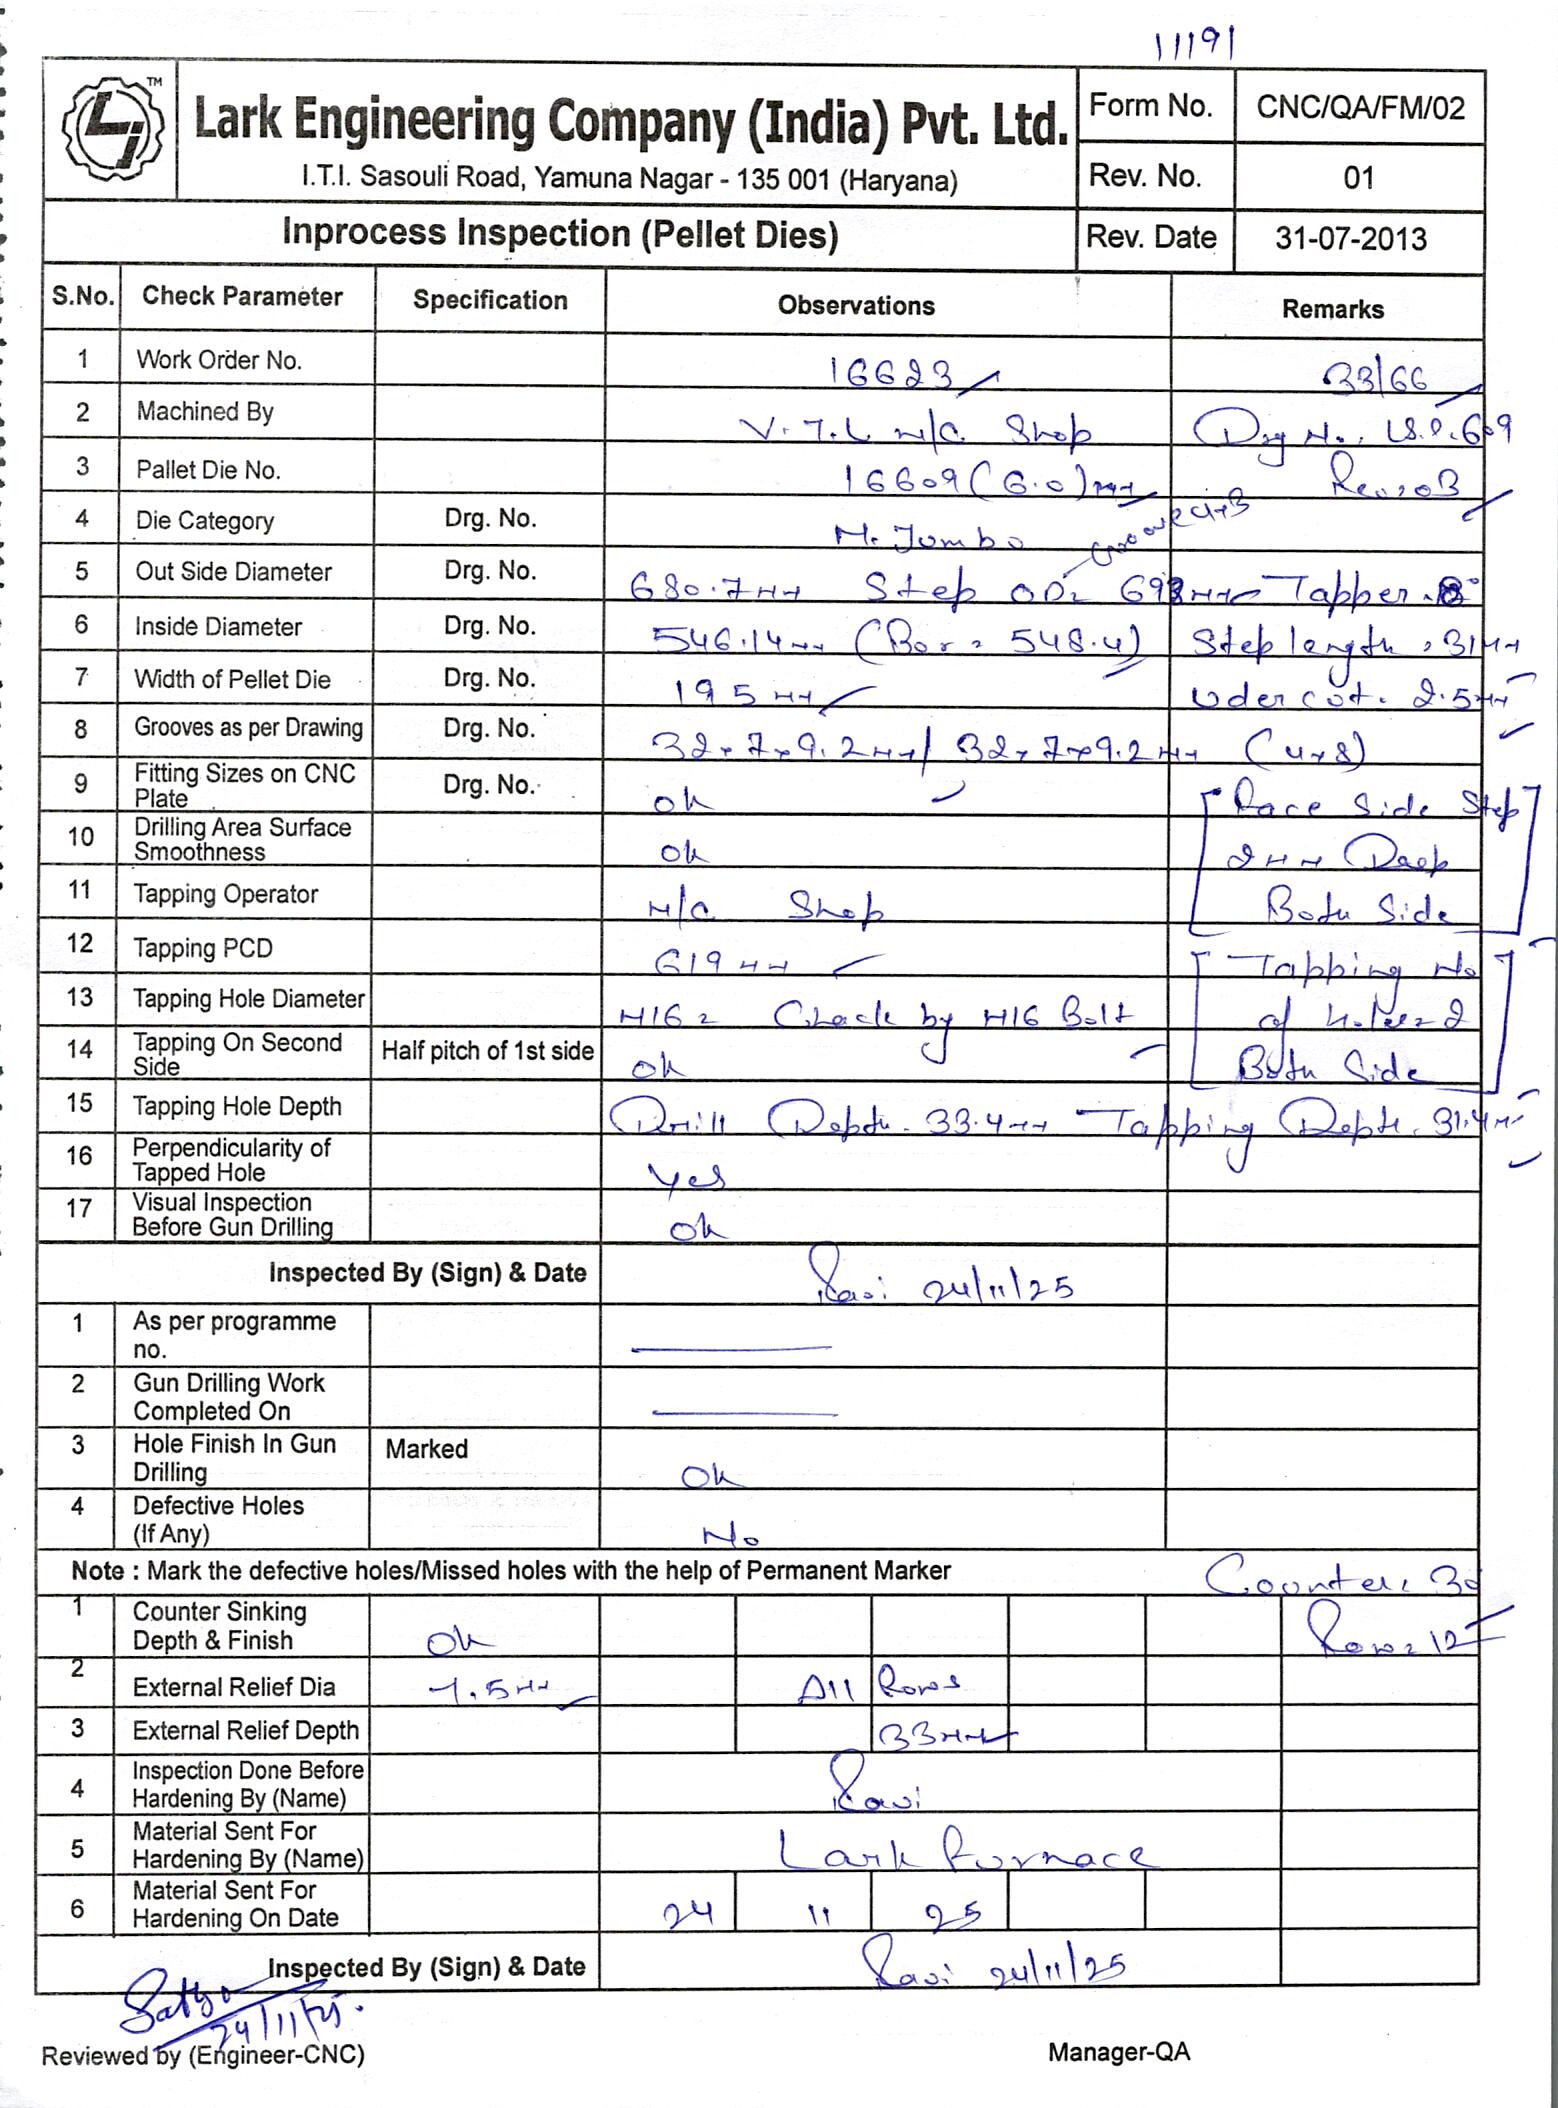 11191
TM
Lark Engineering Company (India) Pvt. Ltd.
I.T.I. Sasouli Road, Yamuna Nagar - 135 001 (Haryana)
Form No. CNC/QA/FM/02
Rev. No. 01
Inprocess Inspection (Pellet Dies)
Rev. Date 31-07-2013
S.No. Check Parameter Specification Observations Remarks
1 Work Order No. 16623 33/66
2 Machined By V.T.L M/C Shop Drg No.
3 Pallet Die No. 16609 (6.0)mm Rev.03
4 Die Category Drg. No. M. Jumbo
5 Out Side Diameter Drg. No. 680.7mm Step OD= Tapper
6 Inside Diameter Drg. No. 546.14mm (Bor= 548.4) Step length = 31mm
7 Width of Pellet Die Drg. No. 195mm Udercut. 2.5mm
8 Grooves as per Drawing Drg. No. 32x7x9.2mm/ 32x7x9.2mm (4x8)
9 Fitting Sizes on CNC Plate Drg. No. ok Race Side Step
10 Drilling Area Surface Smoothness ok 2mm Deep
11 Tapping Operator M/C Shop Both Side
12 Tapping PCD 619mm Tapping No
13 Tapping Hole Diameter M16= Check by M16 Bolt of
14 Tapping On Second Side Half pitch of 1st side ok Both Side
15 Tapping Hole Depth Drill Depth. 33.4mm Tapping Depth. 31.4mm
16 Perpendicularity of Tapped Hole Yes
17 Visual Inspection Before Gun Drilling ok
Inspected By (Sign) & Date Ravi 24/11/25
1 As per programme no.
2 Gun Drilling Work Completed On
3 Hole Finish In Gun Drilling Marked Ok
4 Defective Holes (If Any) No
Note : Mark the defective holes/Missed holes with the help of Permanent Marker Counter.
1 Counter Sinking Depth & Finish Ok Row= 12
2 External Relief Dia 7.5mm All Rows
3 External Relief Depth 33mm
4 Inspection Done Before Hardening By (Name) Ravi
5 Material Sent For Hardening By (Name) Lark Furnace
6 Material Sent For Hardening On Date 24 11 25
Inspected By (Sign) & Date Ravi 24/11/25
24/11/25.
Reviewed by (Engineer-CNC) Manager-QA